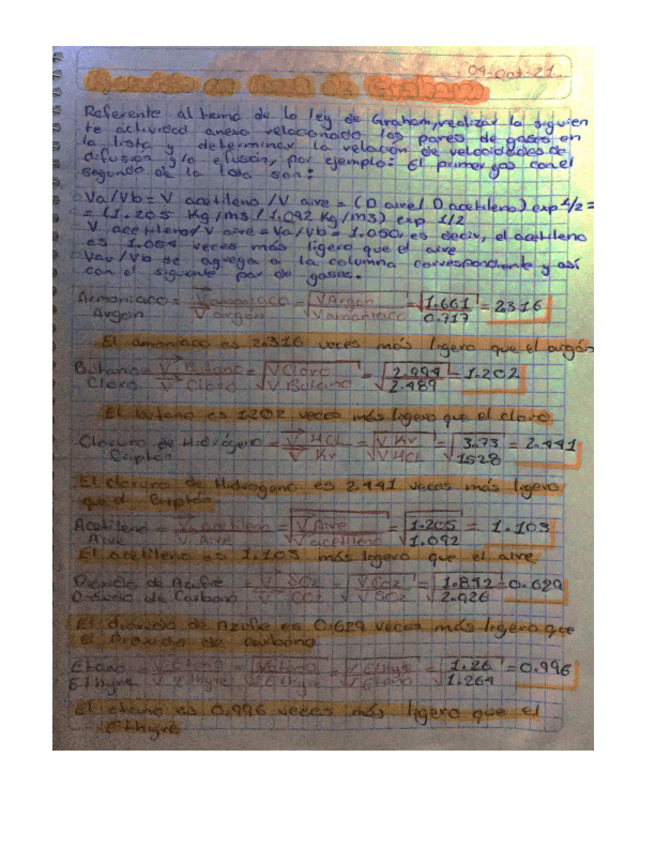 04-Oct-21
Ejercicio en Clase de Graham
Referente al tema de la ley de Graham, realizar la siguien
te actividad anexo relacionado los pares de gases en
la lista y determinar la relación de velocidades de
difusión y/o efusión, por ejemplo: El primer gas con el
segundo de la lista son:
Va/Vb = V acetileno /V aire = (D aire/ D acetileno) exp 1/2 =
= (1.205 Kg/m3 / 1.092 Kg/m3) exp 1/2
V acetileno/V aire = Va/Vb = 1.050, es decir, el acetileno
es 1.054 veces más ligero que el aire
Vav/Vb se agrega a la columna correspondiente y así
con el siguiente par de gases.
Armoniaco = V amoniaco = √V Argon = √1.661 = 2.316
Argon V argón V amoniaco 0.717
El amoniaco es 2.316 veces más ligero que el argón
Butano = V Butano = √V Cloro = √2.994 = 1.202
Cloro V Cloro V Butano 2.489
El butano es 1202 veces más ligero que el cloro
Cloruro de Hidrógeno = V HCL = √V Kr = √3.73 = 2.441
Criptón V Kr V HCL 1528
El cloruro de Hidrogeno es 2.441 veces más ligero
que el Criptón
Acetileno = V acetileno = √V Aire = √1.205 = 1.103
Aire V Aire V acetileno 1.092
El acetileno es 1.103 más ligero que el aire
Dióxido de Azufre = V SO2 = √V CO2 = √1.842 = 0.629
Dióxido de Carbono V CO2 V SO2 2.926
El dióxido de Azufre es 0.629 veces más ligero que
el dioxido de carbono
Etano = V Etano = √V Ethyre = √1.26 = 0.996
Ethyre V Ethyre V Etano 1.264
El etano es 0.996 veces más ligero que el
Ethyre